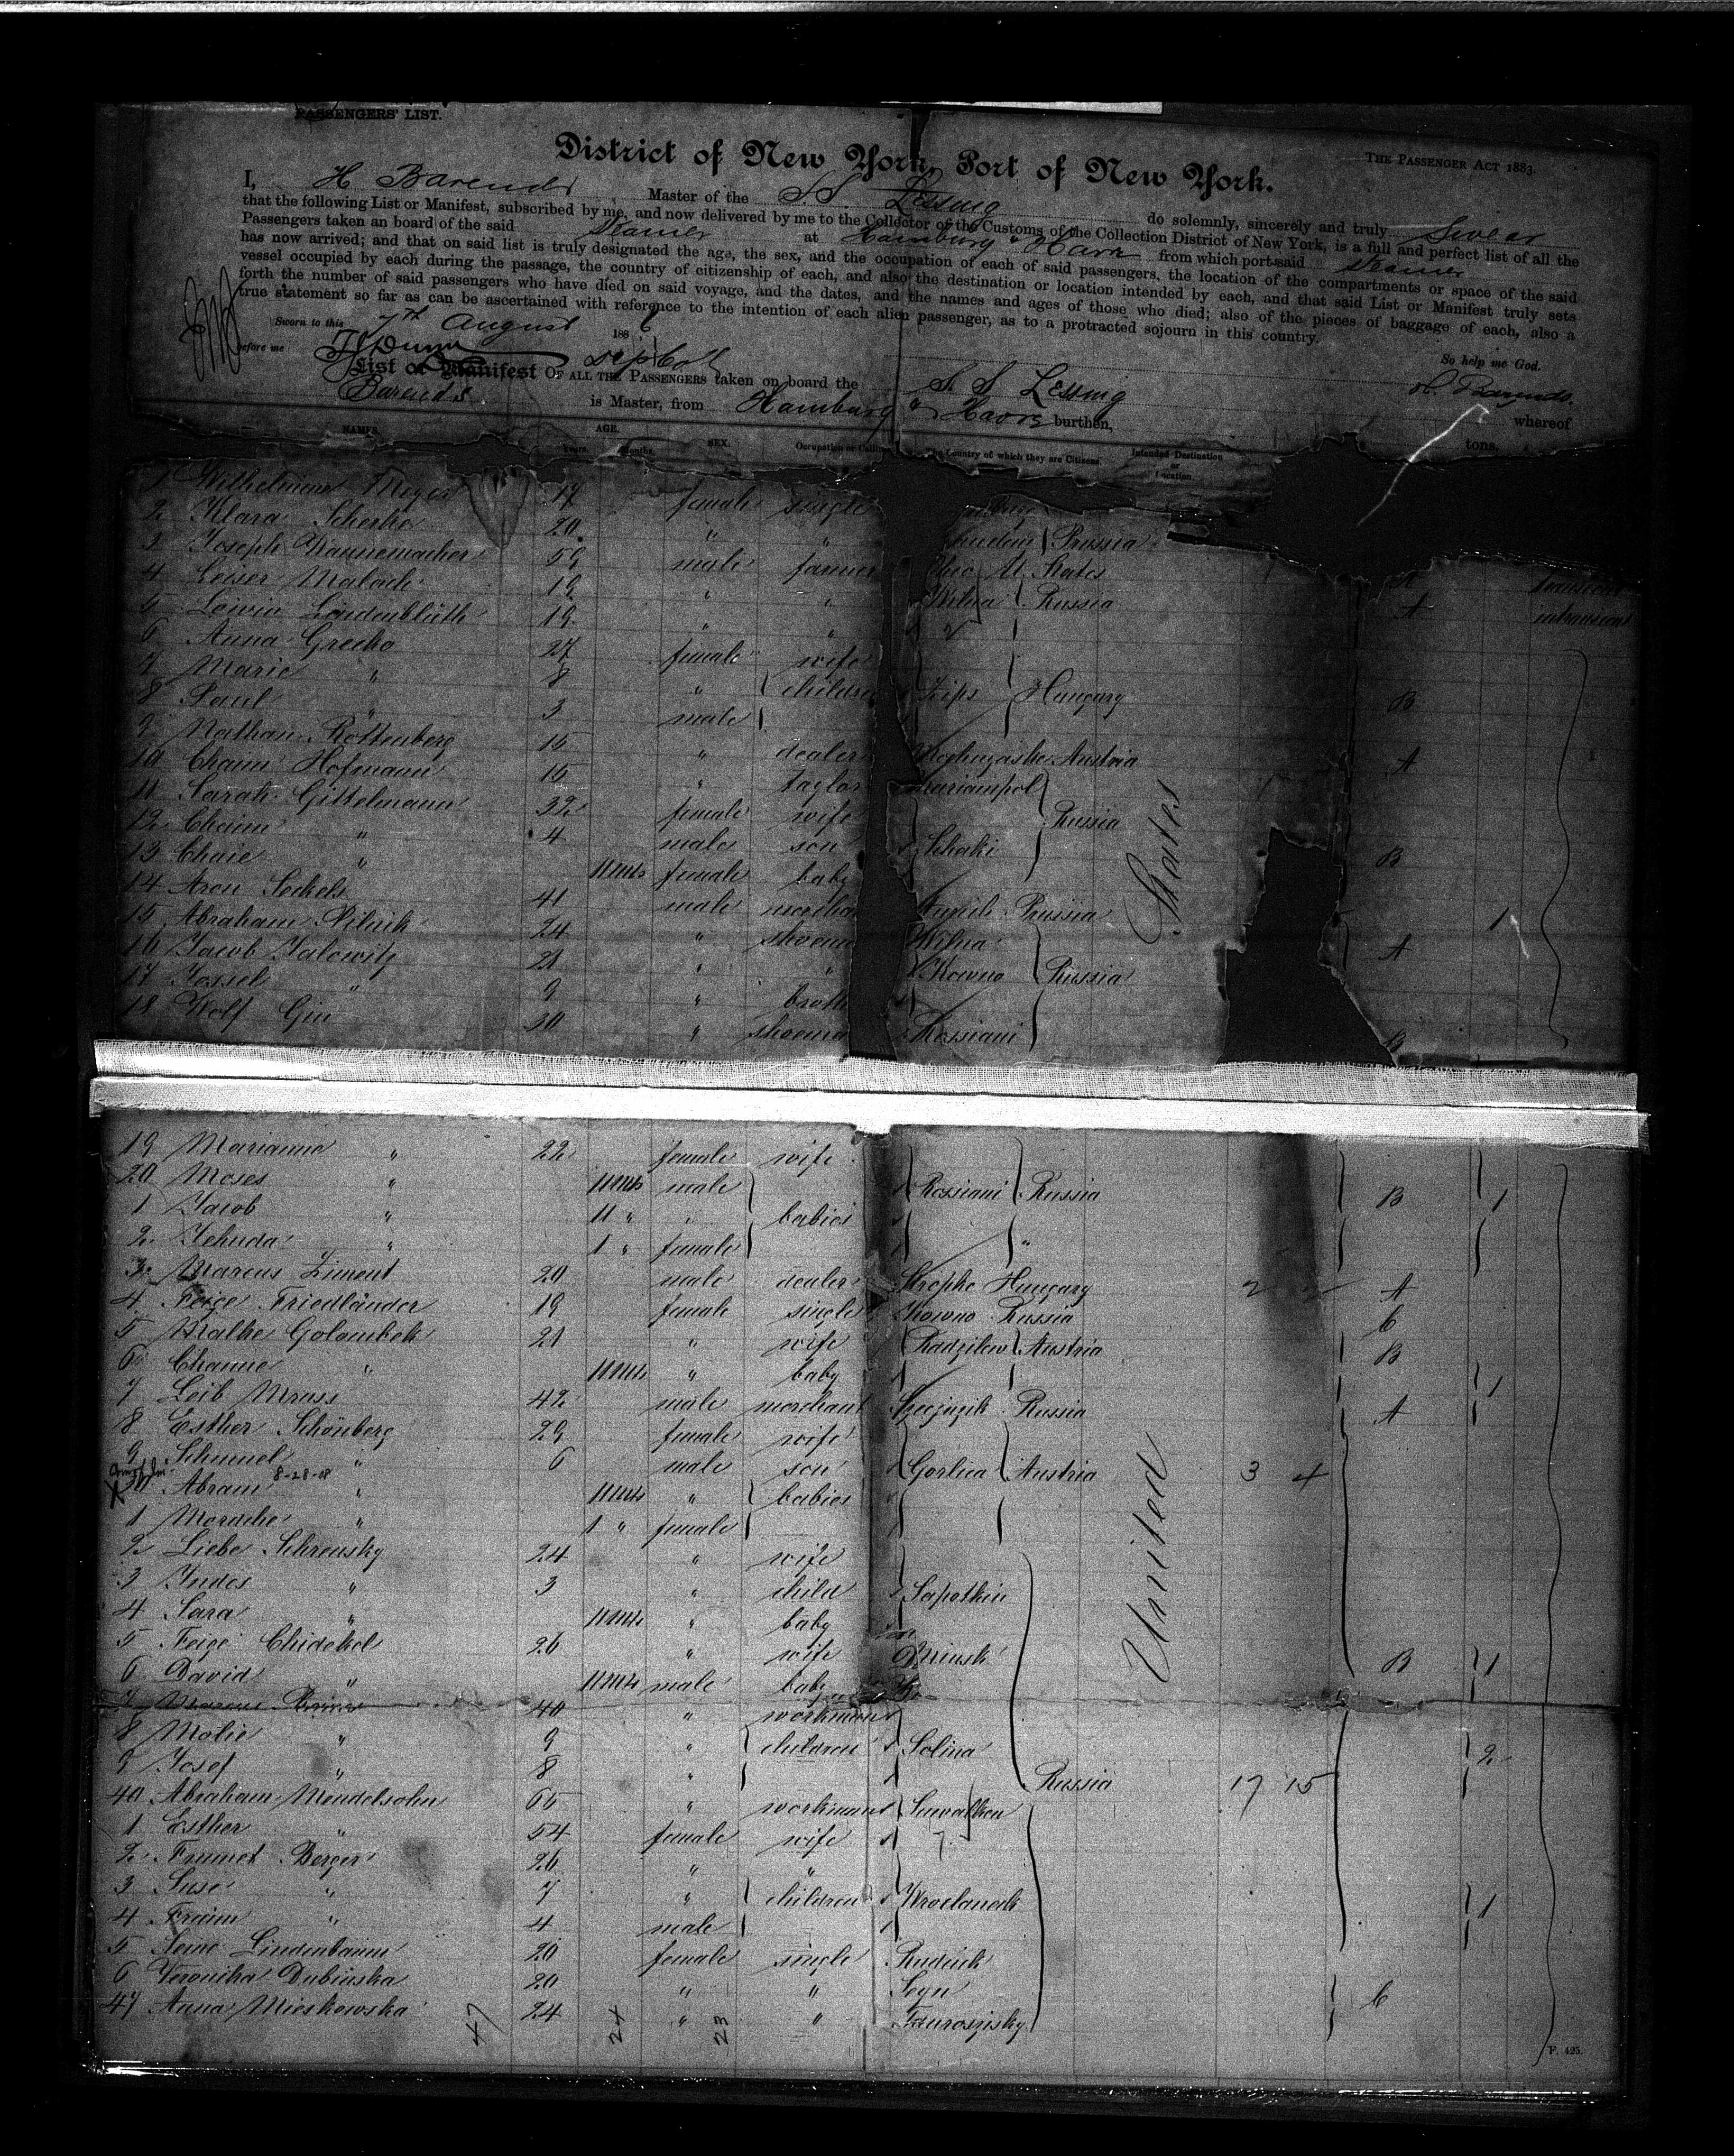 PASSENGERS' LIST.
District of New York, Port of New York.
THE PASSENGER ACT 1883.
I, H Barends Master of the S.S. Lessing do solemnly, sincerely and truly Swear
that the following List or Manifest, subscribed by me, and now delivered by me to the Collector of the Customs of the Collection District of New York, is a full and perfect list of all the
Passengers taken an board of the said Steamer at Hamburg & Havre from which port said Steamer
has now arrived; and that on said list is truly designated the age, the sex, and the occupation of each of said passengers, the location of the compartments or space of the said
vessel occupied by each during the passage, the country of citizenship of each, and also the destination or location intended by each, and that said List or Manifest truly sets
forth the number of said passengers who have died on said voyage, and the dates, and the names and ages of those who died; also of the pieces of baggage of each, also a
true statement so far as can be ascertained with reference to the intention of each alien passenger, as to a protracted sojourn in this country.
Sworn to this 7th August 1886
So help me God.
before me
H. Barends.
List or Manifest OF ALL THE PASSENGERS taken on board the S. S Lessing whereof
Barends is Master, from Hamburg & Havre burthen, tons.
NAMES. AGE. Years. Months. SEX. Occupation or Calling Country of which they are Citizens. Intended Destination or Location.
1 Meyer 17 female single
2 Klara Scherke 20 " " Prussia
3 Joseph Wannemacher 59 male farmer U. States A transient
4 Leiser Malach 19 " " Wilna Russia A intransient
5 Leiwin Lindenblüth 19 " "
6 Anna Grecko 27 female wife
7 Marie " 8 " children Zips Hungary B
8 Paul " 3 male
9 Nathan Rottenberg 15 " dealer Austria A
10 Chaim Hofmann 15 " taylor Mariampol
11 Sarah Gittelmann 32 female wife Russia
12 Chaim " 4 male son Schaki B
13 Chaie " 11 mts female baby
14 Aron Seckels 41 male Aurich Prussia 1
15 Abraham Pilnik 24 " Wilna A
16 Jacob Jalowitz 21 " " Kowno Russia
17 Jossel " 9 "
18 Wolf Gin 30 " Rossiani B
States
19 Marianne " 22 female wife
20 Moses " 11 mts male Rossiani Russia B 1
1 Jacob " 11 " " babies
2 Jehuda " 1 " female "
3 Marcus Ziment 20 male dealer Stropko Hungary 2 A
4 Feige Friedländer 19 female single Kowno Russia C
5 Malke Golombek 21 " wife Radzilow Austria B
6 Channe " 11 mts " baby 1
7 Leib Mruss 42 male merchant Russia A
8 Esther Schönberg 29 female wife
9 Schmuel " 6 male son Gorlice Austria 3 4
8-28-08
30 Abram " 11 mts " babies
1 Mordche " 1 " female
2 Liebe Schrensky 24 " wife
3 Judes " 3 " child Sapotkin
4 Sara " 11 mts " baby
5 Feige Chidekel 26 " wife Minsk B 1
6 David " 11 mts male baby
7 Marcus 40 " workman
8 Molie " 9 " children Solina 2
9 Josef " 8 " Russia 17 15
40 Abraham Mendelsohn 65 " workman Suwalken
1 Esther " 54 female wife
2 Frumet Berger 26 " "
3 Suse " 7 " children Wroclanek 1
4 Fraim " 4 male
5 Seine Lindenbaum 20 female single Rudnik
6 Veronika Dubinska 20 " " Seyn C
47 Anna Mieskowska 24 " "
United
47 24 23
P. 425.